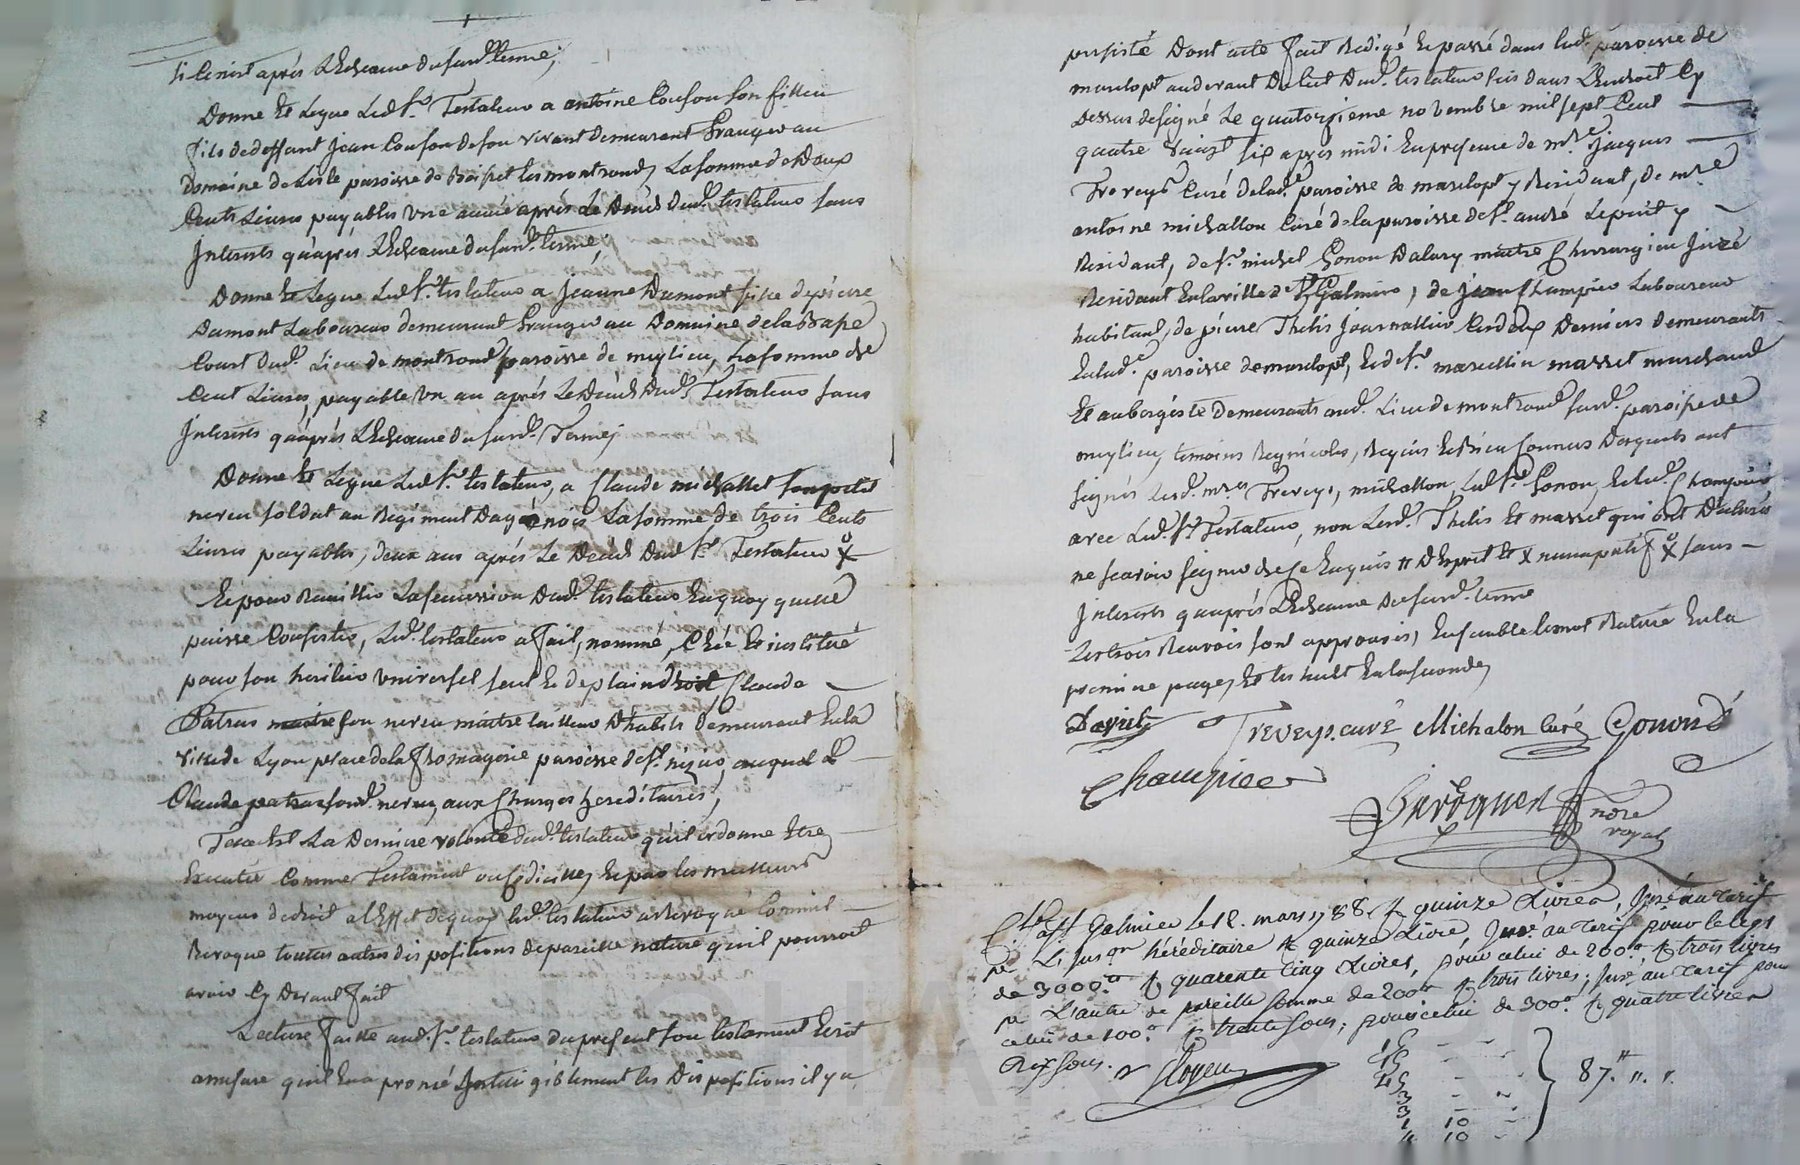 si ce n'est après L'Echeance dusurd. terme;
Donne Et Legue Led. Sr. Testateur a antoine Couson son filleu
fils de deffunt Jean Couson de son vivant demeurant Granger au
Domaine de Lisle paroisse de Boisset les montrond, La somme de Deux
Cents Livres payables une année après Le Décès Dud. testateur sans
Interests qu'après L'Echeance dusurd. terme;
Donne Et Legue Led. Sr. testateur a Jeanne Dumont fille de pierre
Dumont Laboureur demeurant Granger au Domaine de la
Court Dud. Lieu de montrond paroisse de meylieu, La somme de
Cent Livres, payable un an après Le Décès Dud. Testateur sans
Interests qu'après L'Echeance du surd. Terme;
Donne Et Legue Led. Sr. testateur, a Claude michallet son petit
neveu soldat au Regiment Dagenois La somme de trois Cents
Livres payables, deux ans après Le Décès Dud. Sr. Testateur
Et pour Recueillir La succession Dud. testateur En quoy quelle
puisse Consister, Led. testateur a fait, nommé, Créé Et institué
pour son heritier universel seul Et de plain droit, Claude
Patras maitre son neveu maitre tailleur D'habits demeurant En la
ville de Lyon place de la fromagerie paroisse de St. nizier, auquel
Claude patras son d. neveu, aux Charges hereditaires,
Telle Est La Derniere volonté dud. testateur qu'il ordonne Etre
Executée Comme Testament ou Codicille, Et par les meilleurs
moyens de droit a L'Effet de quoy led. testateur a Revoqué Comme il
Revoque toutes autres dispositions de pareille nature qu'il pourroit
avoir Cy Devant fait
Lecture faitte aud. Sr. testateur du present son testament Ecrit
amesure qu'il En a prononcé Intelligiblement les Dispositions il y a
persisté Dont acte fait Redigé Et passé dans lad. paroisse de
marclopt au devant Dud. testateur sis dans L'Endroit Cy
Dessus designé Le quatorzieme novembre mil sept Cent
quatre vingt six après midi En presence de mre. Jacques
Treveys Curé de lad. paroisse de marclopt y Residant, de mre.
antoine michallon Curé de la paroisse de St. andré Le puit y
Residant, de Sr. michel Gonon Dalary maitre Chirurgien Juré
Residant En la ville de St. Galmier, de Jean Champier Laboureur
habitant, de pierre Thelis Journallier Ces deux Derniers demeurants
En lad. paroisse de marclopt, Et de Sr. marcellin masset marchand
Et aubergiste Demeurants aud. Lieu de montrond surd. paroisse de
meylieu, temoins Regnicoles, Requis Et Bien Connus Desquels ont
signés Lesd. mres. Treveys, michallon, led. Sr. Gonon, Et led. Champier
avec Led. Sr. Testateur, non Lesd. Thelis Et masset qui ont Déclaré
ne scavoir signer de ce Enquis D'Esprit Et X sans
Interests qu'après L'Echeance dusurd. terme
Les trois Renvois sont approuvés, Ensemble le mot Raturé En la
premiere page, Et les huit En la seconde,
Treveys. curé Michalon Curé Gonond
Champier
nore
royal
Galmier le 12. mars 1788. quinze Livres, Insé au Tarif
héréditaire quinze Livre, Insé. au Tarif pour le legs
de 3000. quarente Cinq Livres, pour celui de 200. trois livres
L'autre de pareille somme de 200 trois livres; Insé au Tarif pour
celui de 100. trente sous; pour celui de 300. quatre livres
Dix sous.
15
15
45
3
3
1 10
4 10
87. " "